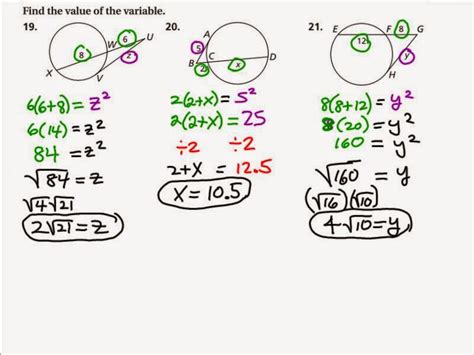 Find the value of the variable.
19.
W
6
U
8
z
X
V
6(6+8) = z²
6(14) = z²
84 = z²
√84 = z
√4 √21
2√21 = z
20.
A
5
B
C
2
x
D
2(2+x) = 5²
2(2+x) = 25
÷2 ÷2
2+x = 12.5
x = 10.5
21.
E
F
8
G
12
y
H
8(8+12) = y²
8(20) = y²
160 = y²
√160 = y
(√16)(√10)
4√10 = y